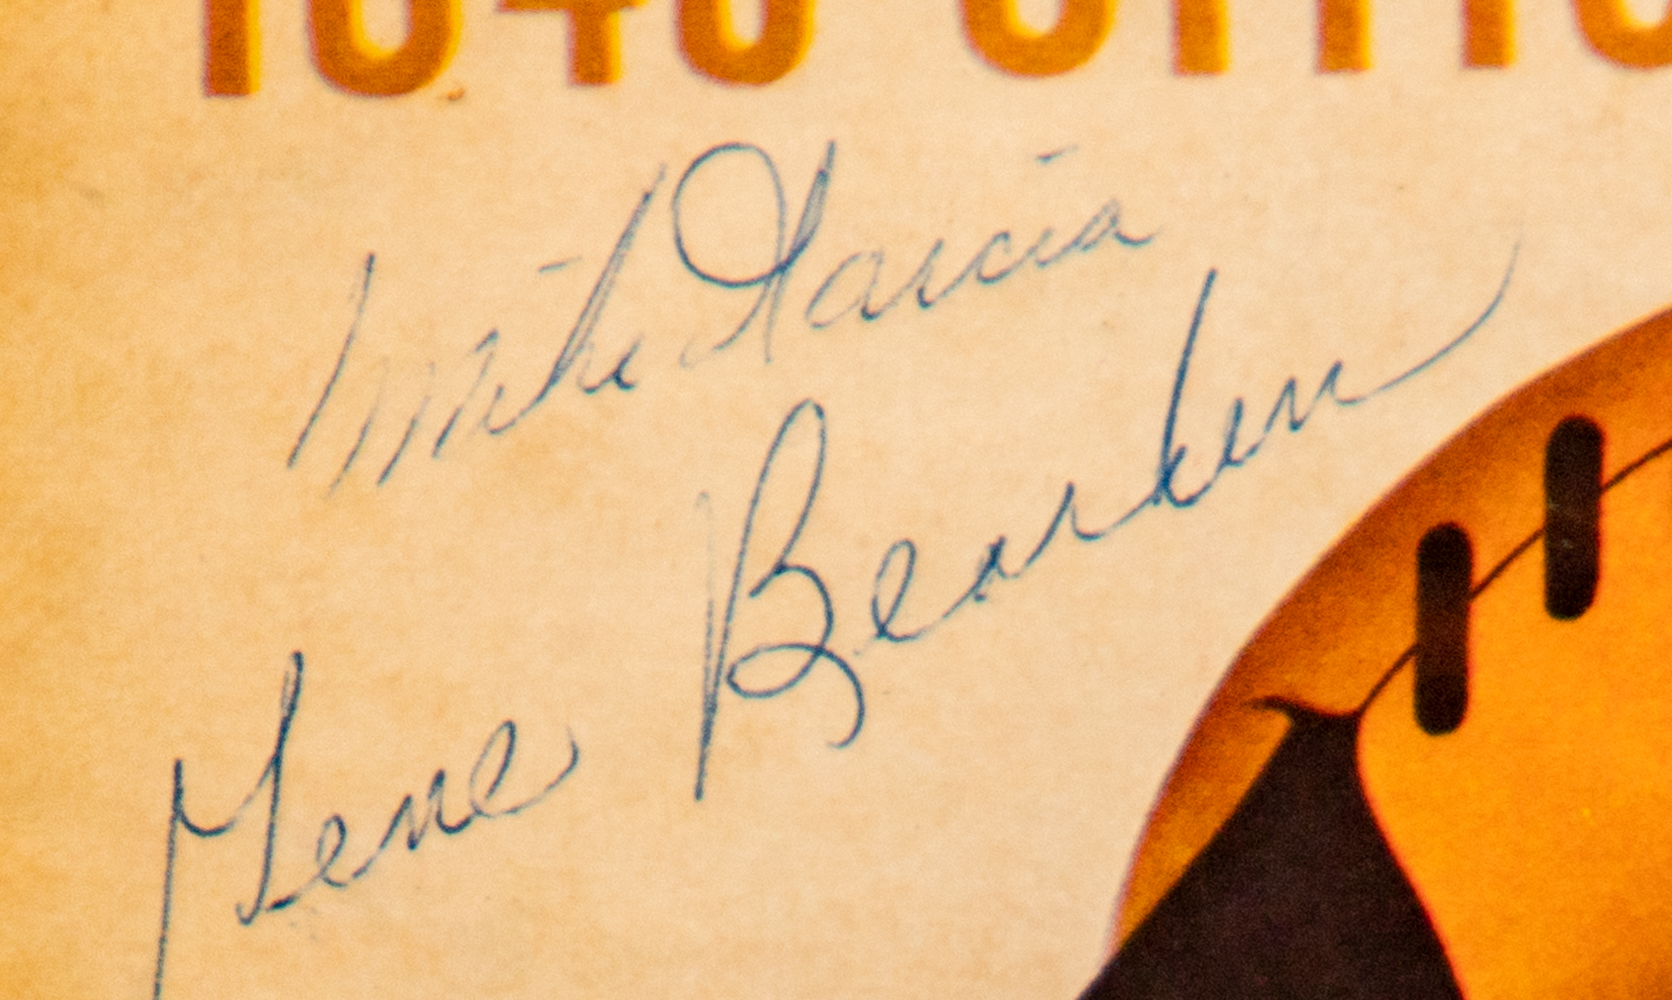 Mike Garcia
Gene Bearden